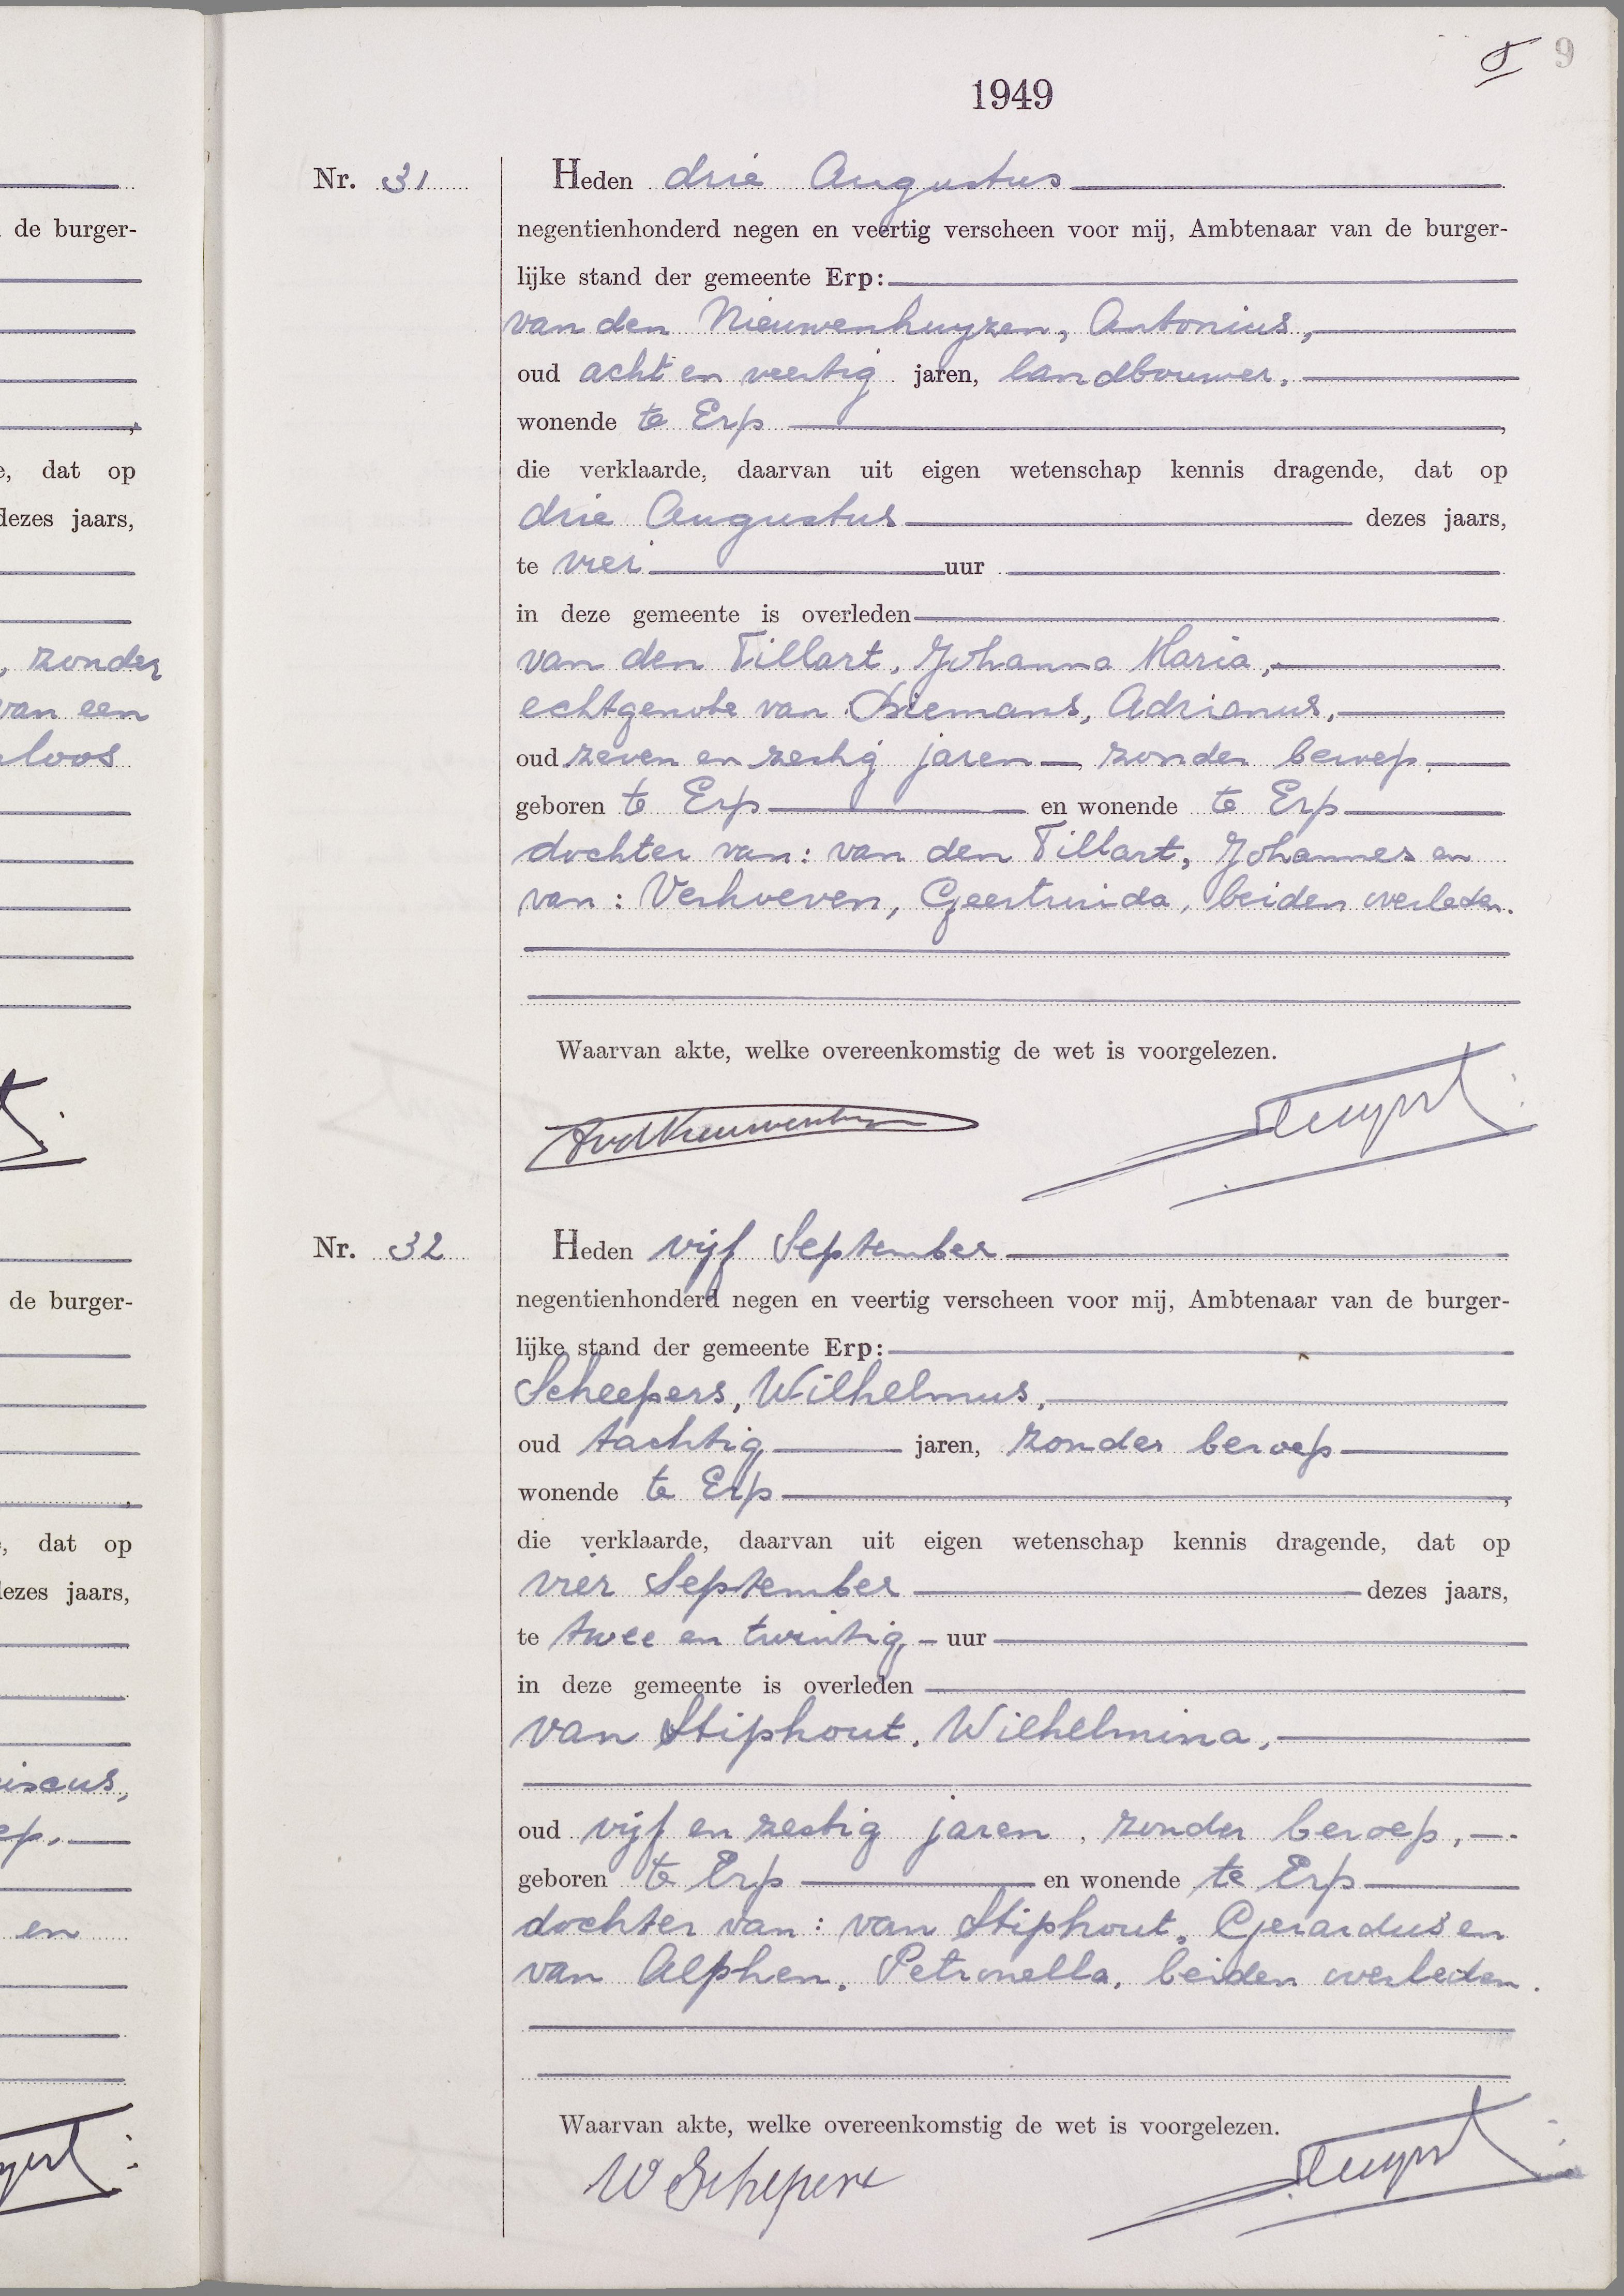 9
1949
Nr. 31
Heden drie Augustus
negentienhonderd negen en veertig verscheen voor mij, Ambtenaar van de burger-
lijke stand der gemeente Erp:
van den Nieuwenhuyzen, Antonius,
oud acht en veertig jaren, landbouwer,
wonende te Erp,
die verklaarde, daarvan uit eigen wetenschap kennis dragende, dat op
drie Augustus dezes jaars,
te vier uur
in deze gemeente is overleden
van den Tillart, Johanna Maria,
echtgenote van Driemans, Adrianus,
oud zeven en zestig jaren, zonder beroep,
geboren te Erp en wonende te Erp
dochter van: van den Tillart, Johannes en
van: Verhoeven, Geertruida, beiden overleden.
Waarvan akte, welke overeenkomstig de wet is voorgelezen.
Nr. 32
Heden vijf September
negentienhonderd negen en veertig verscheen voor mij, Ambtenaar van de burger-
lijke stand der gemeente Erp:
Scheepers, Wilhelmus,
oud tachtig jaren, zonder beroep
wonende te Erp,
die verklaarde, daarvan uit eigen wetenschap kennis dragende, dat op
vier September dezes jaars,
te twee en twintig uur
in deze gemeente is overleden
van Stiphout, Wilhelmina,
oud vijf en zestig jaren, zonder beroep,
geboren te Erp en wonende te Erp
dochter van: van Stiphout, Gerardus en
van Alphen, Petronella, beiden overleden.
Waarvan akte, welke overeenkomstig de wet is voorgelezen.
W Schepers
de burger-
dat op
dezes jaars,
zonder
van een
loos
de burger-
dat op
dezes jaars,
en